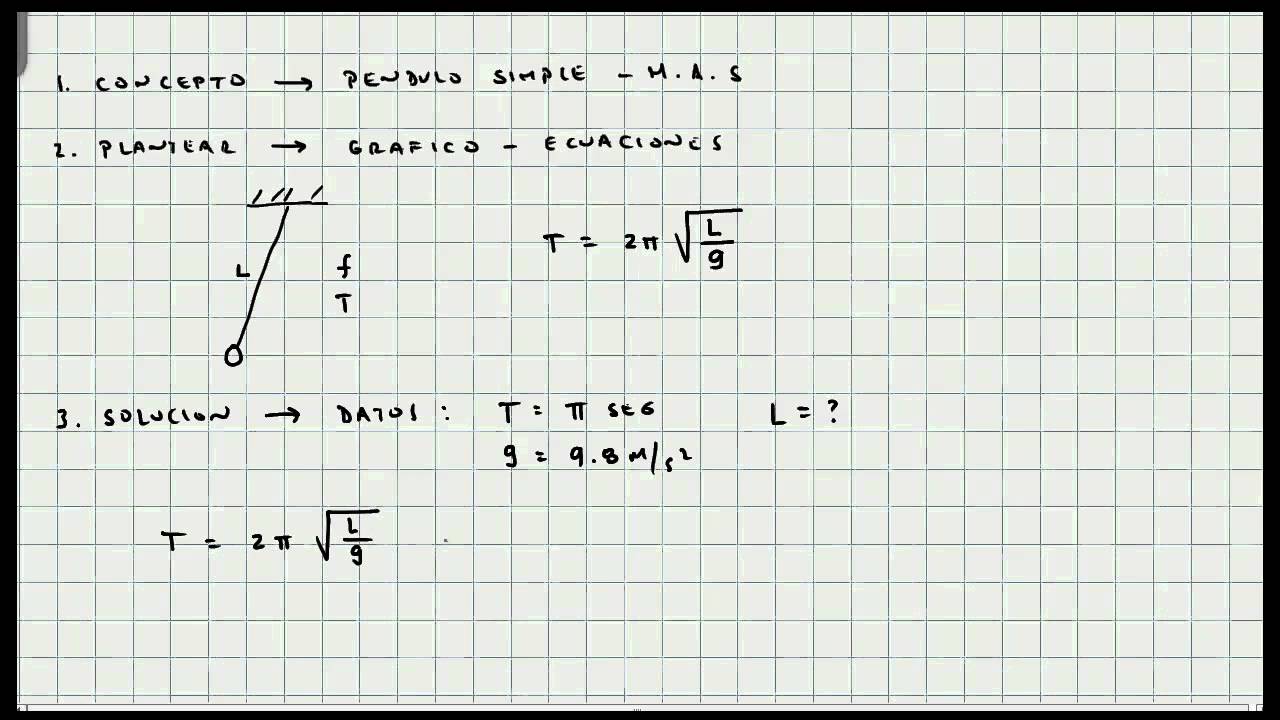 1. CONCEPTO → PENDULO SIMPLE - M.A.S
2. PLANTEAR → GRAFICO - ECUACIONES
T = 2π √(L/g)
L
f
T
3. SOLUCION → DATOS : T = π SEG L = ?
g = 9.8 M/s²
T = 2π √(L/g)